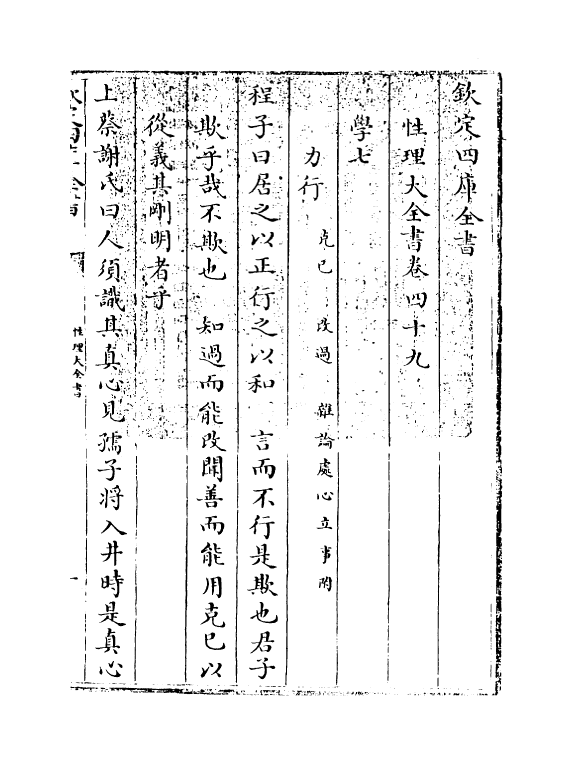 欽定四庫全書
性理大全書卷四十九
學七
力行 克己 改過 雜論處心立事附
程子曰居之以正行之以和 言而不行是欺也君子
欺乎哉不欺也 知過而能改聞善而能用克己以
從義其剛明者乎
上蔡謝氏曰人須識其真心見孺子將入井時是真心
性理大全書
一